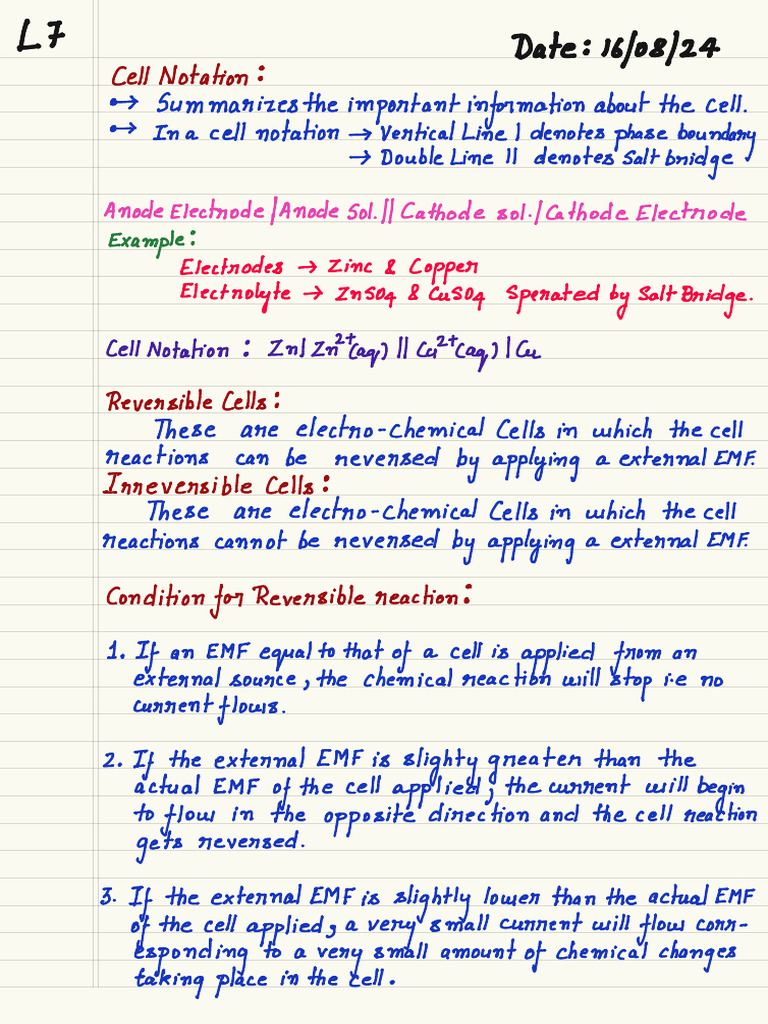 L7
Date: 16/08/24
Cell Notation:
↦ Summarizes the important information about the cell.
↦ In a cell notation → Vertical Line | denotes phase boundary
→ Double Line || denotes Salt bridge
Anode Electrode | Anode Sol. || Cathode sol. | Cathode Electrode
Example:
Electrodes → Zinc & Copper
Electrolyte → ZnSO4 & CuSO4 Sperated by Salt Bridge.
Cell Notation : Zn | Zn²⁺(aq) || Cu²⁺(aq) | Cu
Reversible Cells:
These are electro-chemical Cells in which the cell
reactions can be reversed by applying a external EMF.
Irreversible Cells:
These are electro-chemical Cells in which the cell
reactions cannot be reversed by applying a external EMF.
Condition for Reversible reaction:
1. If an EMF equal to that of a cell is applied from an
external source, the chemical reaction will stop i.e no
current flows.
2. If the external EMF is slighty greater than the
actual EMF of the cell applied, the current will begin
to flow in the opposite direction and the cell reaction
gets reversed.
3. If the external EMF is slightly lower than the actual EMF
of the cell applied, a very small current will flow corr-
esponding to a very small amount of chemical changes
taking place in the cell.